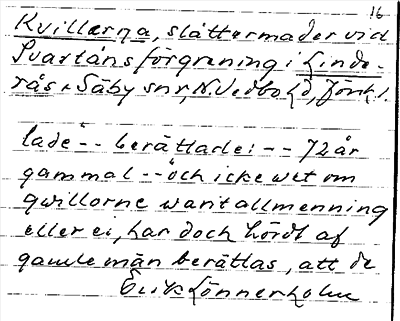 16
Kvillerna, slåttermader vid
Svartåns förgrening i Linde-
rås o Säby snr, N. Vedbo hd, Jönk l.
lade -- berättade: -- 72 år
gammal -- och icke wet om
qwillorne warit allmenning
eller ei, har doch hördt af
gamle män berättas, att de
Erik Lönnerholm